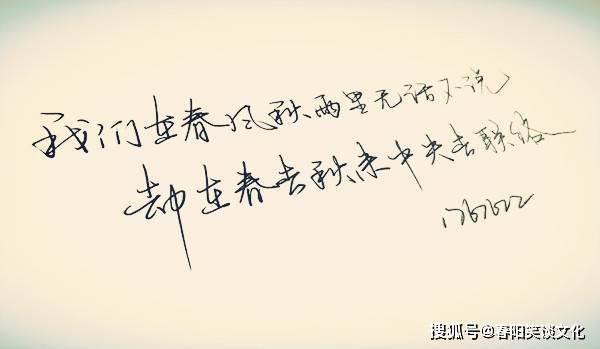 我们在春风秋雨里无话不说
却在春去秋来中失去联络
搜狐号@春阳笑谈文化